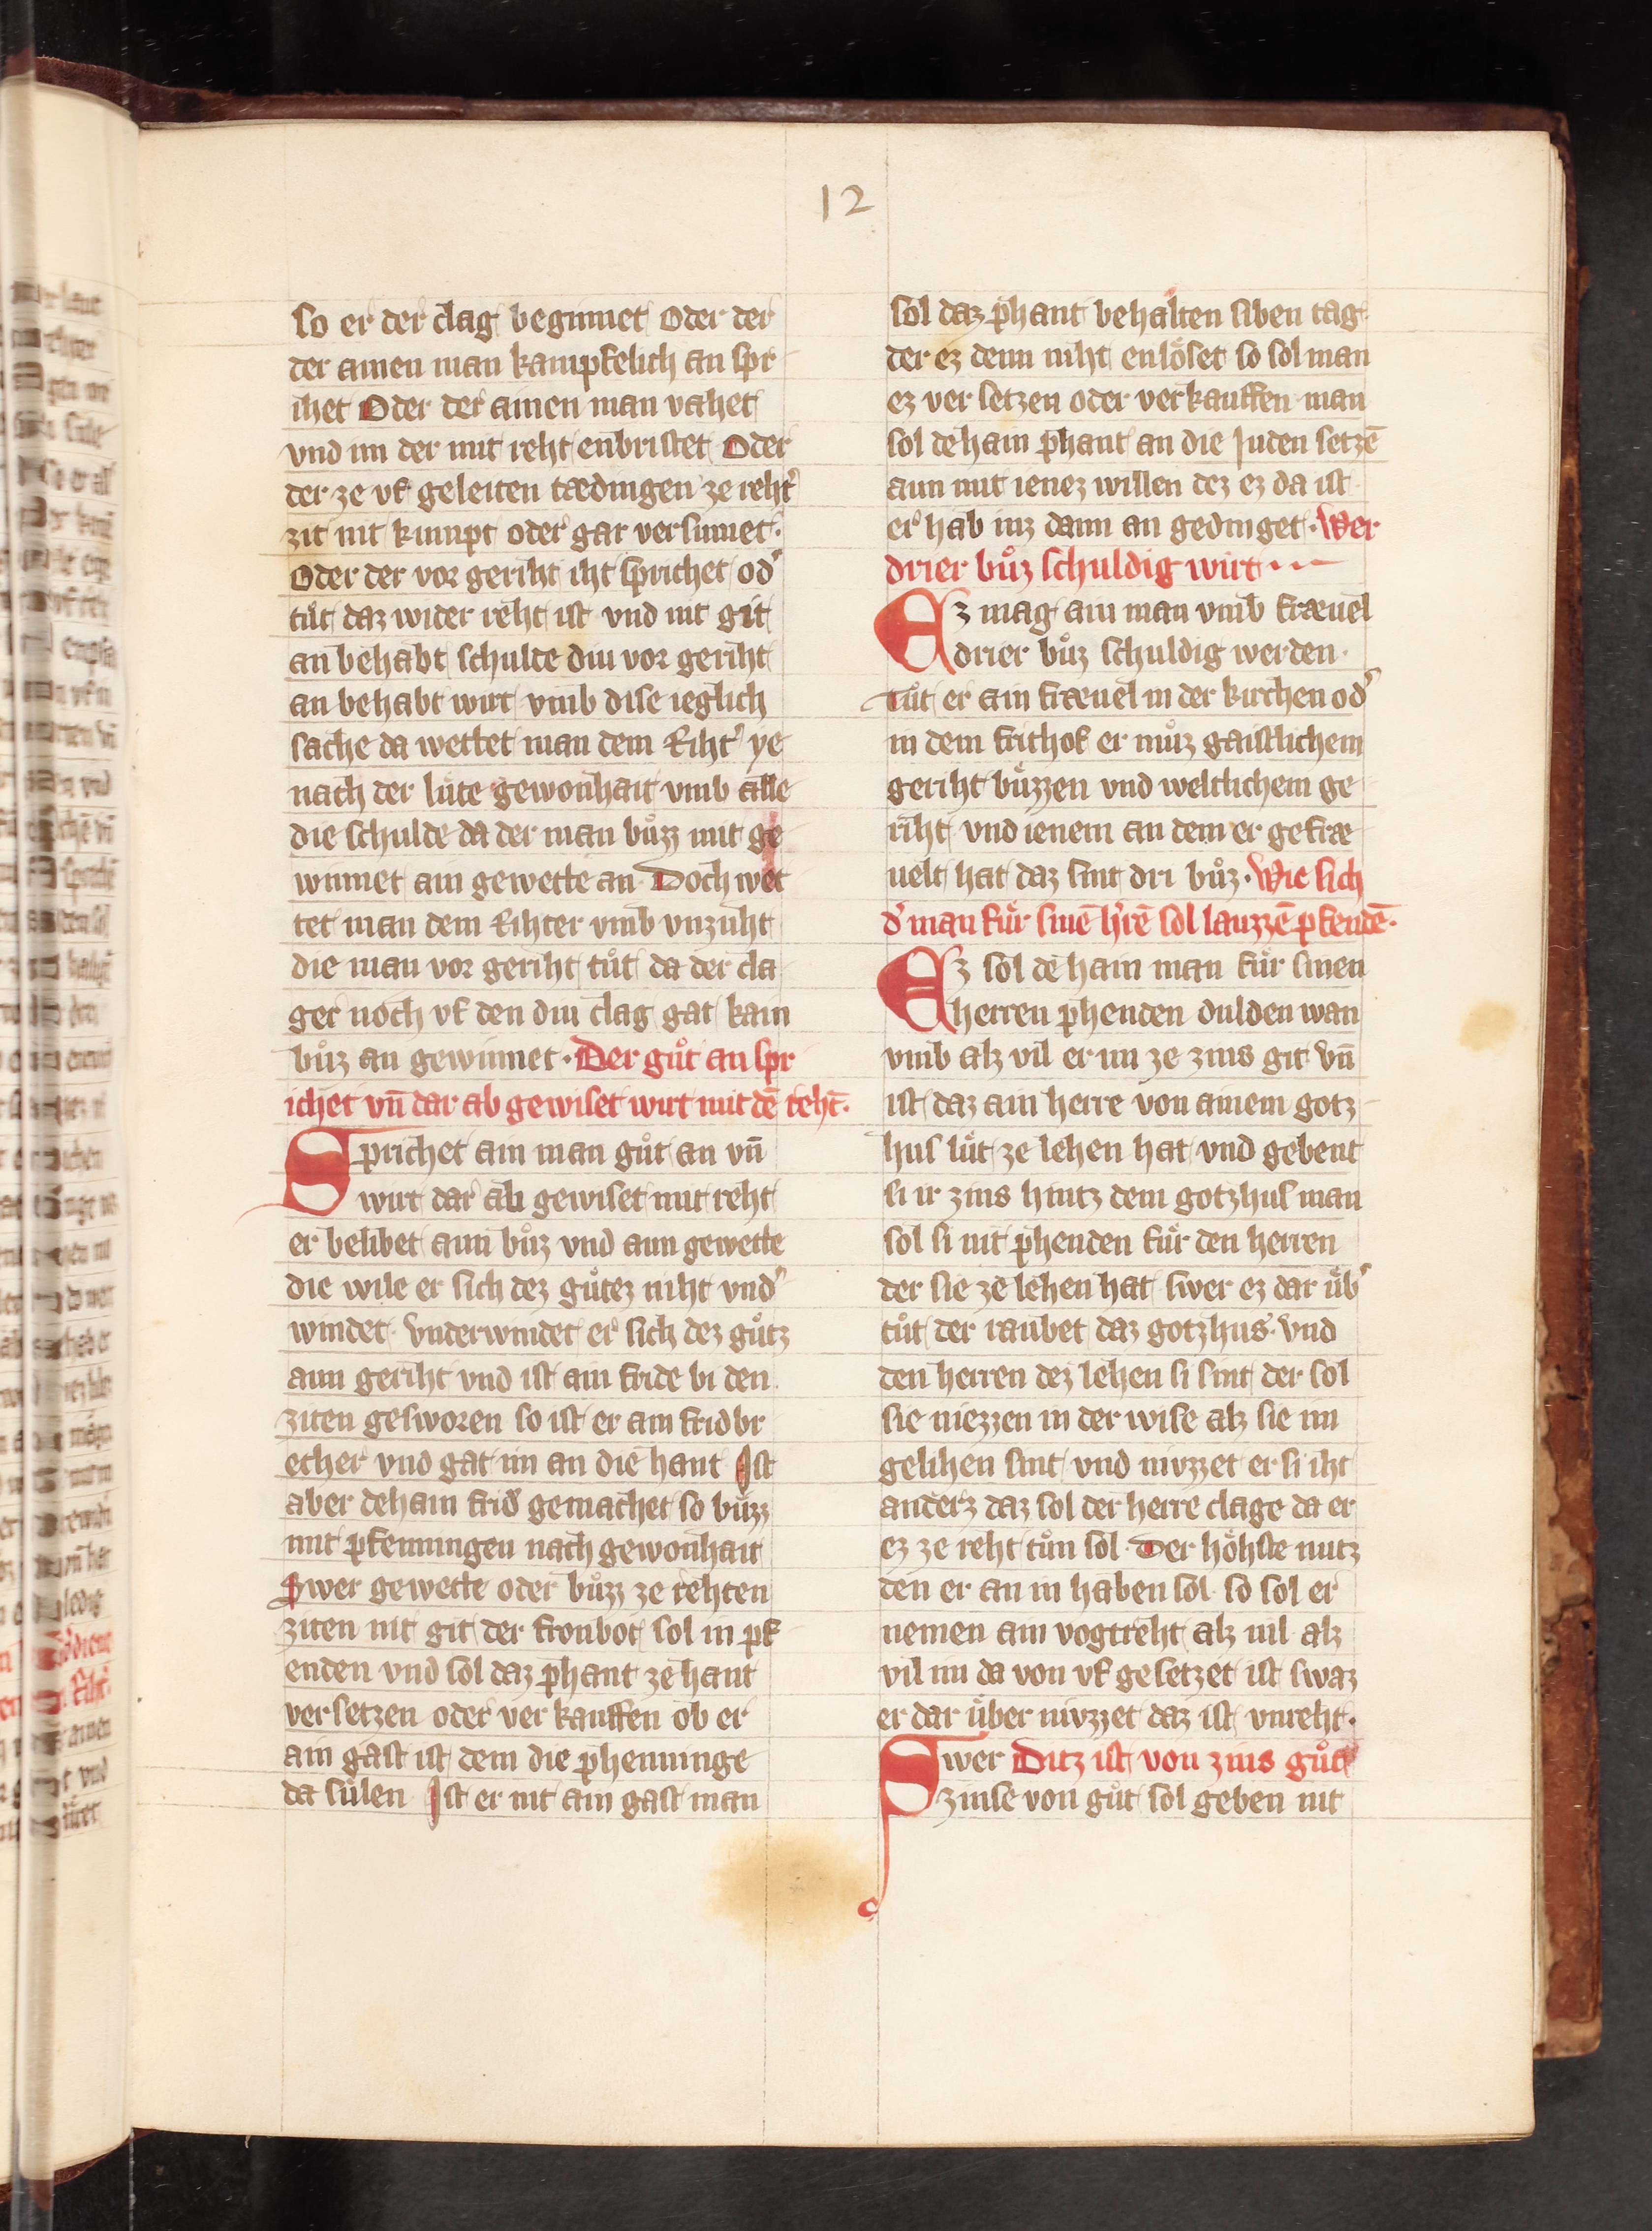 12
so er der clag beginnet Oder der
der ainen man kampfelich an spr
ichet Oder der ainen man vahet
vnd im der mit reht enbristet Oder
der ze vf geleiten tædingen ze reht᾽
zit nit kumpt oder gar versumet·
Oder der vor geriht iht sprichet od᾽
tůt daz wider reht ist vnd nit git
an behabt schulde diu vor geriht
an behabt wirt vmb dise ieglich
sache da wettet man dem Riht᾽ ye
nach der lute gewonhait vmb alle
die schulde da der man bůzz mit ge
winnet ain gewette an· Doch wet
tet man dem Rihter vmb vnzuht
die man vor geriht tůt da der cla
ger noch vf den diu clag gat kain
bůz an gewinnet· Der gůt an spr
ichet vn̄ dar ab gewiset wirt mit dē reht·
Sprichet ain man gůt an vn̄
wirt dar ab gewiset mit reht
er belibet aun bůz vnd aun gewette
die wile er sich dez gůtez niht vnd᾽
windet· Vnderwindet er sich dez gůtz
aun geriht vnd ist ain fride bi den
ziten gesworen so ist er ain fridbr
echer vnd gat im an die hant Ist
aber dehain frid gemachet so bůzz
mit pfenningen nach gewonhait
Swer gewette oder bůzz ze rehten
ziten nit git der fronbot sol in pf
enden vnd sol daz phant ze hant
versetzen oder ver kauffen ob er
ain gast ist dem die phenninge
da sulen Ist er nit ain gast man
sol daz phant behalten siben tag
der ez denn niht enlöset so sol man
ez ver setzen oder verkauffen man
sol dehain phant an die Juden setzē
aun mit ienez willen dez ez da ist
er hab imz dann an gedinget· Wer
drier bůz schuldig wirt ···
Ez mag ain man vmb fræuel
drier bůz schuldig werden·
Tůt er ain fræuel in der kirchen od᾽
in dem frithof er můz gaistlichem
geriht bůzzen vnd weltlichem ge
riht vnd ienem an dem er gefræ
uelt hat daz sint dri bůz· Wie sich
d᾽ man für sinē h᾽rē sol lauzzē pfendē·
Ez sol dehain man für sinen
herren phenden dulden wan
vmb alz vil er im ze zins git vn̄
ist daz ain herre von ainem gotz
hus lüt ze lehen hat vnd gebent
si ir zins hintz dem gotzhus man
sol si nit phenden für den herren
der sie ze lehen hat swer ez dar üb᾽
tůt der raubet daz gotzhus· Vnd
den herren dez lehen si sint der sol
sie niezzen in der wise alz sie im
gelihen sint vnd nivzzet er si iht
anderz daz sol der herre clage da er
ez ze reht tůn sol· Der höhste nutz
den er an in haben sol so sol er
nemen ain vogtreht alz uil alz
vil im da von vf gesetzet ist swaz
er dar über nivzzet daz ist vnreht·
Swer Ditz ist von zins gůt
zinse von gůt sol geben nit